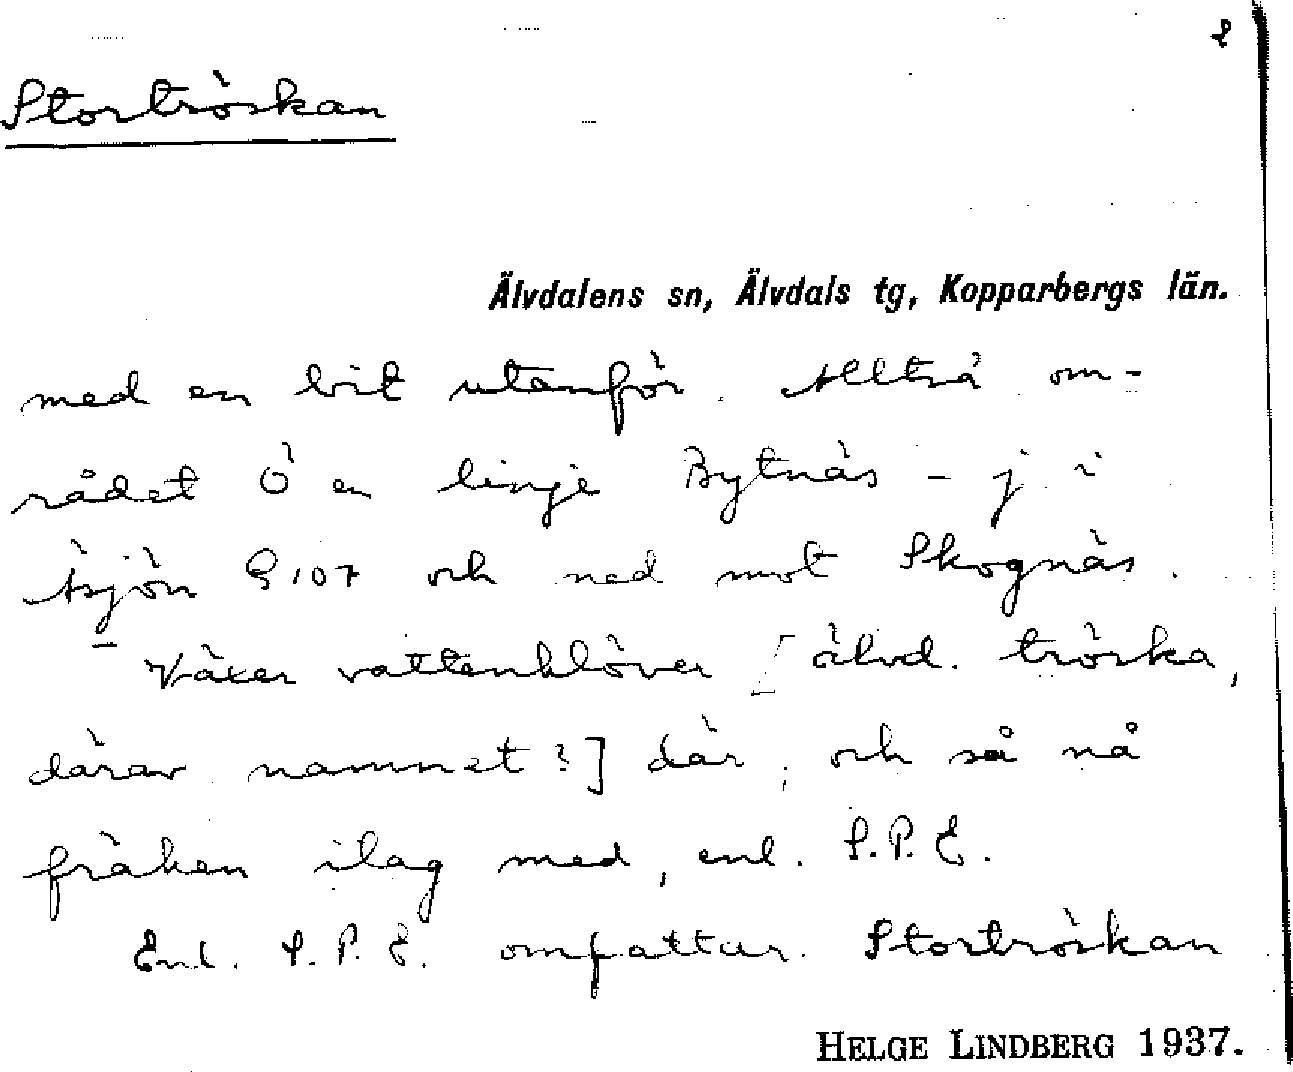 2
Stortröskan
Älvdalens sn, Älvdals tg, Kopparbergs län.
med en bit utanför. Alltså om-
rådet Ö en linje Bytnäs - j. i
Åsjön G 107 och ned mot Skognäs.
Växer vattenklöver [älvd. tröska,
därav namnet?] där, och så nå
fräken ilag med, enl. S.P.E.
Enl. S.P.E. omfattar Stortröskan
HELGE LINDBERG 1937.